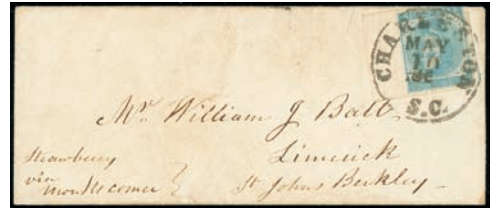 CHARLESTON
MAY
10
S.C.
Mr. William J Ball
Limerick
St Johns Berkley
Strawberry
via